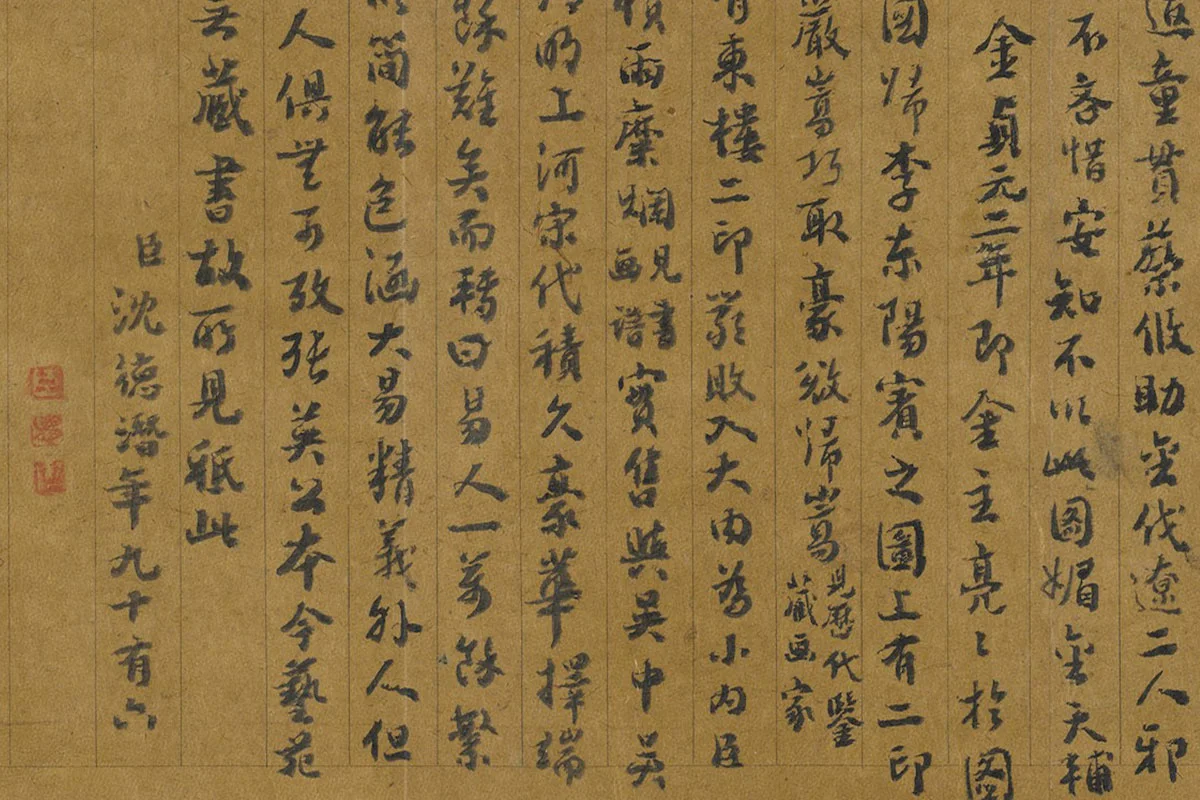 童貫蔡攸助金伐遼二人邪
不吝惜安知不以此图媚金天輔
金貞元二年即金主亮〻於图
國歸李东陽賓之圖上有二印
嚴嵩巧取豪斂歸嵩見歷代鑒藏画家
有東樓二印嚴敗入大内為小内臣
積雨糜爛見書画譜實售與吳中吳
明上河宋代積久豪華擇端
餘難矣而轉曰易人一萬餘繁
簡能色涵大易精義外人但
人俱無可攷張英公本今藝苑
云藏書故所見祗此
臣沈德潛年九十有六